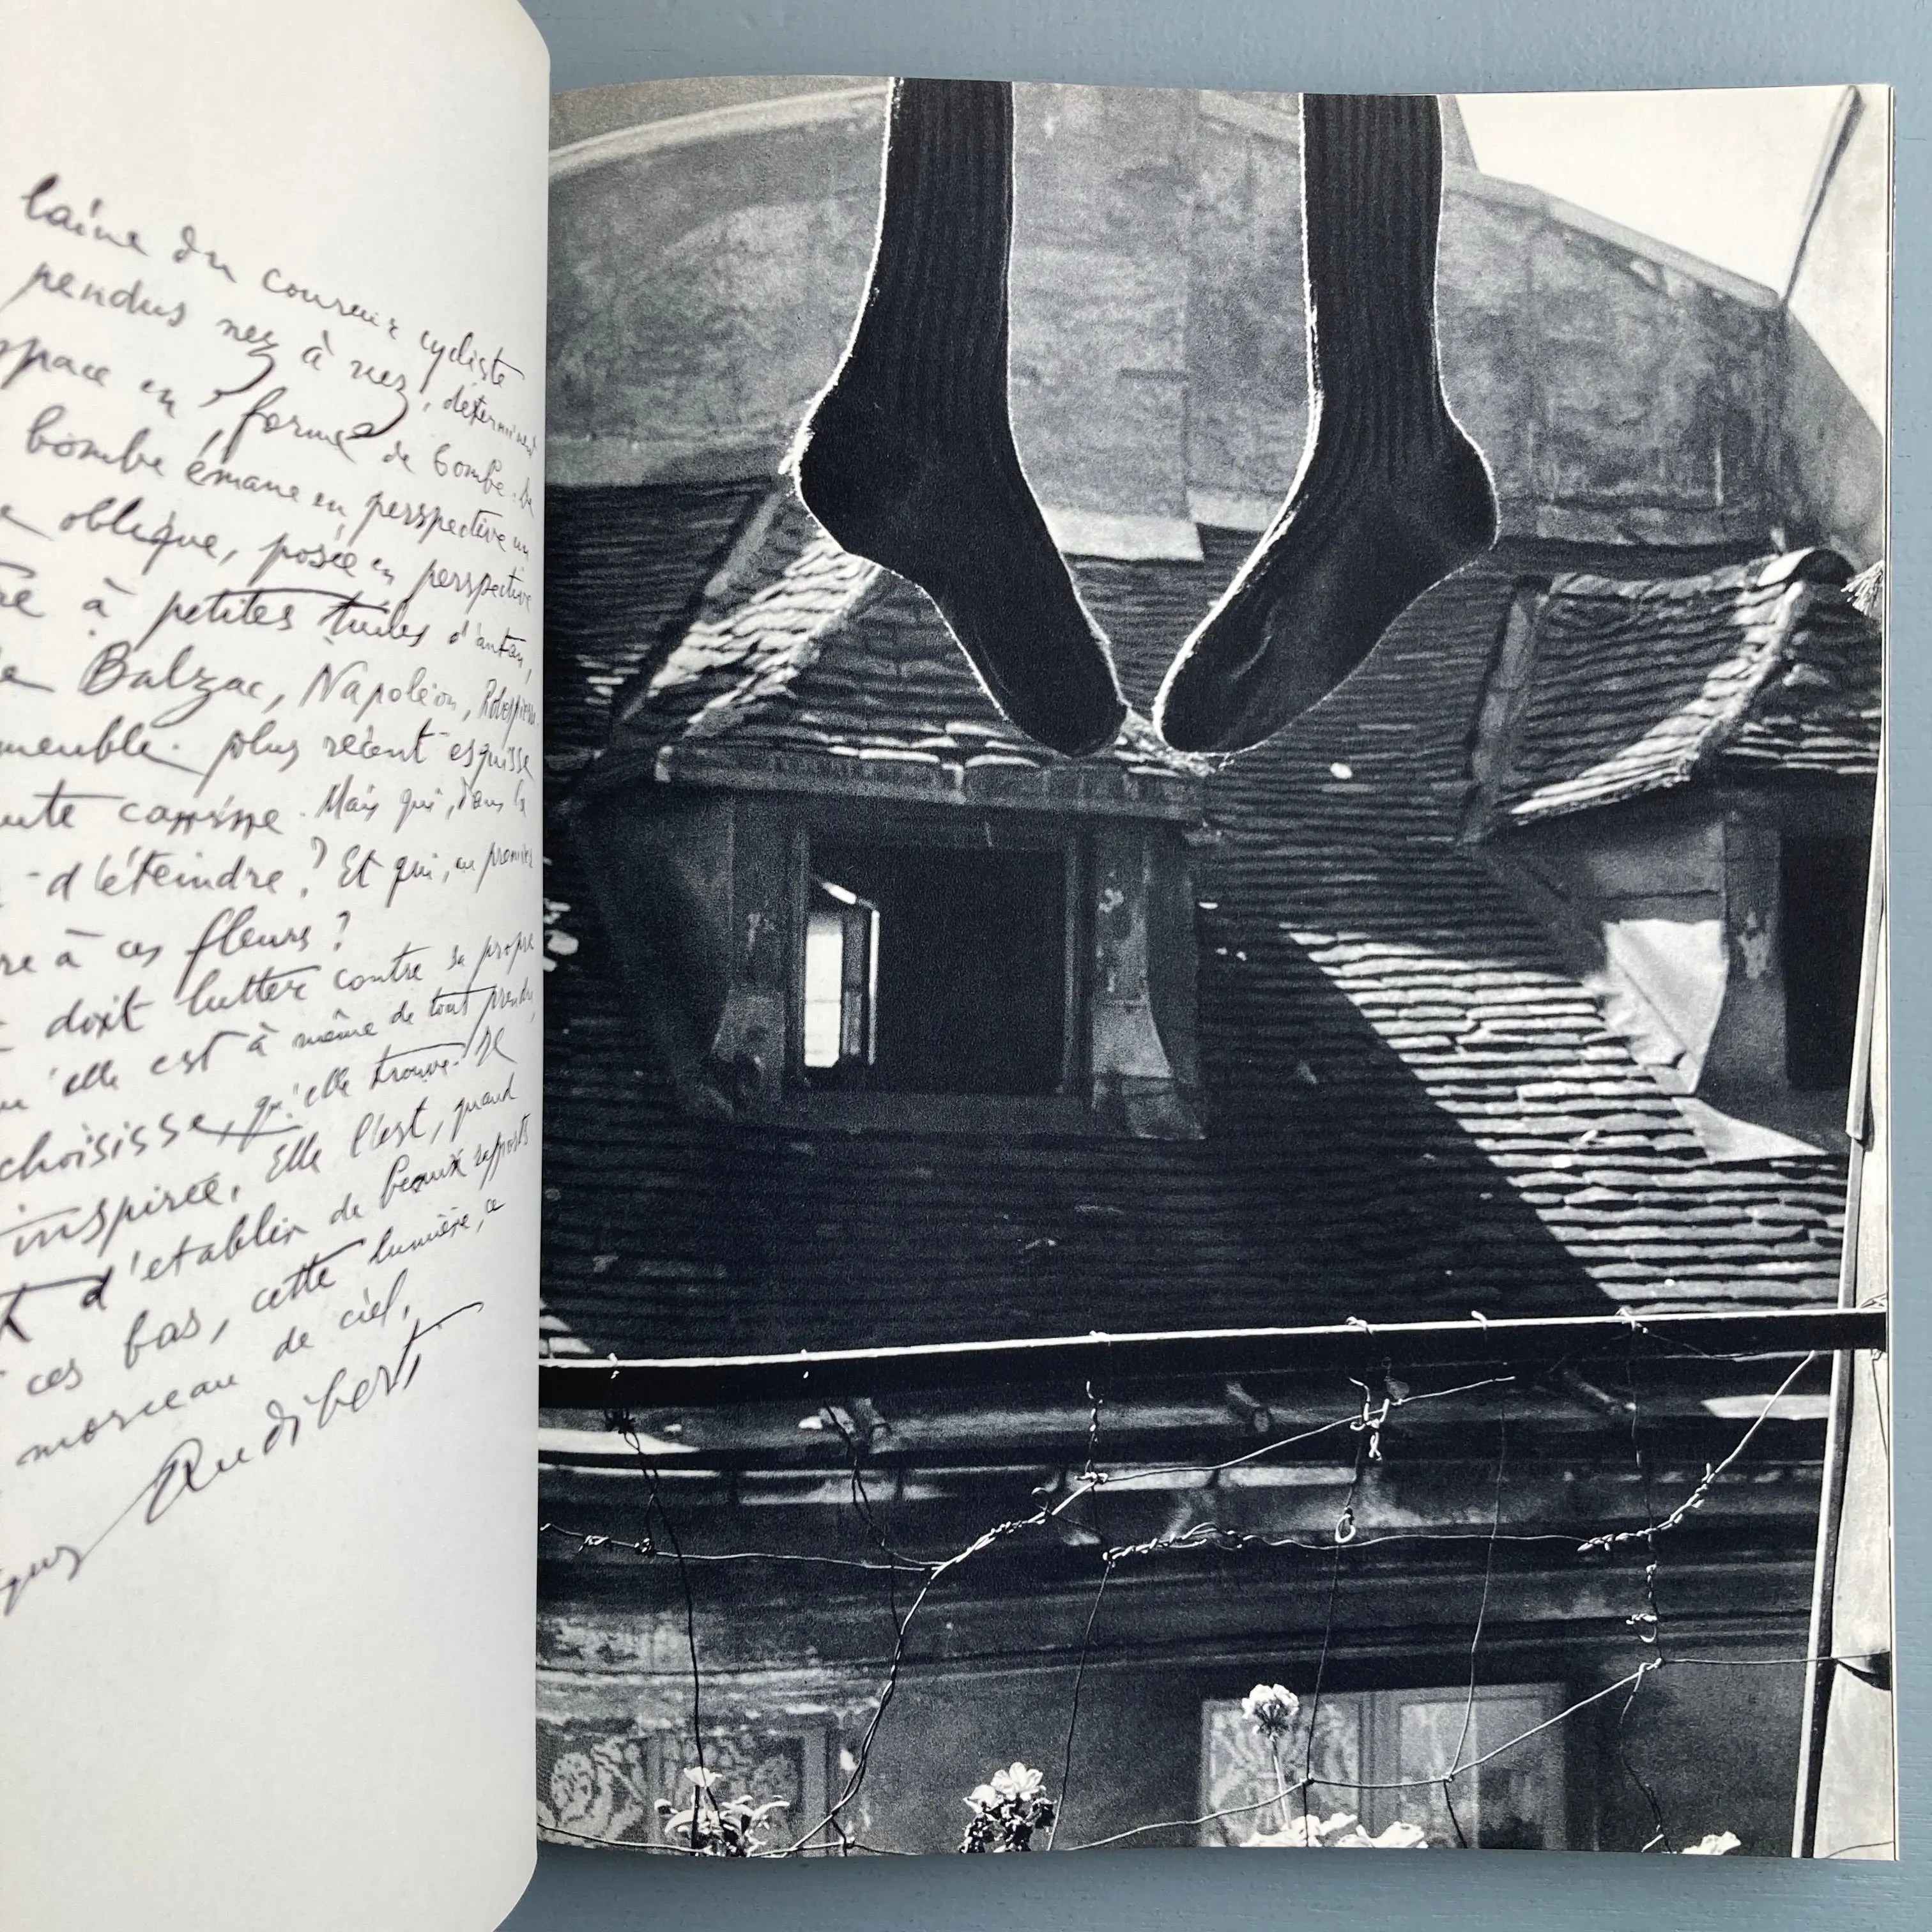 laine du coureur cycliste
pendus nez à nez, déterminent
space en forme de bombe. De
bombe émane en perspective un
e oblique, posée en perspective
re à petites tuiles d'antan,
de Balzac, Napoléon, Robespierre.
meuble plus récent esquisse
ute carrure. Mais qui, dans la
d'éteindre? Et qui, au premier
re à ces fleurs?
doit lutter contre sa propre
u'elle est à même de tout prendre,
choisisse, qu'elle trouve. De
inspirée. Elle l'est, quand
t d'établir de beaux rapports
ces bas, cette lumière, ce
morceau de ciel.
ques Audiberti.